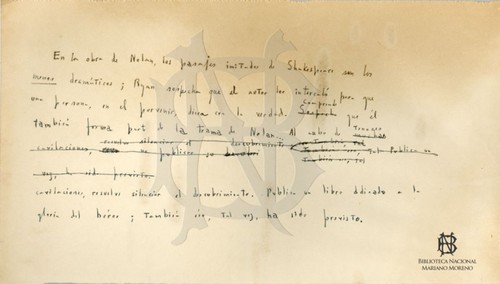 En la obra de Nolan, los pasajes imitados de Shakespeare son los
menos dramáticos; Ryan sospecha que el autor los intercaló para que
una persona, en el porvenir, diera con la verdad. Comprende
que él
también forma parte de la trama de Nolan... Al cabo de tenaces
cavilaciones, resuelve silenciar el descubrimiento
no publicar su
cavilaciones, resuelve silenciar el descubrimiento. Publica un libro dedicado a la
gloria del héroe; también eso, tal vez, ha sido previsto.
BIBLIOTECA NACIONAL
MARIANO MORENO